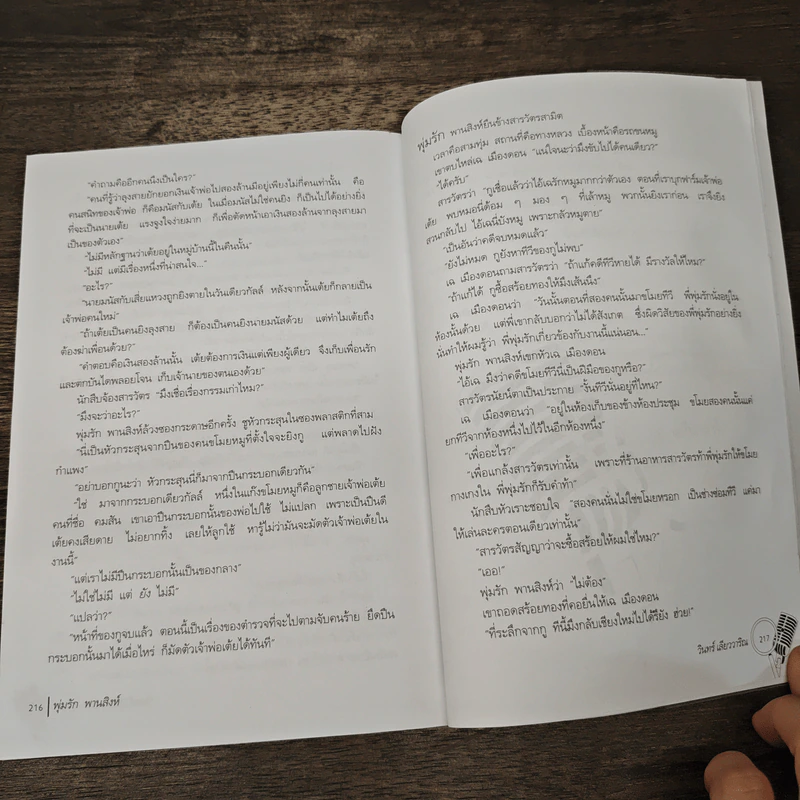 "คำถามคืออีกคนนึงเป็นใคร?"
"คนที่รู้ว่าลุงสายยักยอกเงินเจ้าพ่อไปสองล้านมีอยู่เพียงไม่กี่คนเท่านั้น คือ
คนสนิทของเจ้าพ่อ ก็คือมนัสกับเต้ย ในเมื่อมนัสไม่ใช่คนยิง ก็เป็นไปได้อย่างยิ่ง
ที่จะเป็นนายเต้ย แรงจูงใจง่ายมาก ก็เพื่อตัดหน้าเอาเงินสองล้านจากลุงสายมา
เป็นของตัวเอง"
"ไม่มีหลักฐานว่าเต้ยอยู่ในหมู่บ้านนี้ในคืนนั้น"
"ไม่มี แต่มีเรื่องหนึ่งที่น่าสนใจ..."
"อะไร?"
"นายมนัสกับเสี่ยแหวงถูกยิงตายในวันเดียวกัลล์ หลังจากนั้นเต้ยก็กลายเป็น
เจ้าพ่อคนใหม่"
"ถ้าเต้ยเป็นคนยิงลุงสาย ก็ต้องเป็นคนยิงนายมนัสด้วย แต่ทำไมเต้ยถึง
ต้องฆ่าเพื่อนด้วย?"
"คำตอบคือเงินสองล้านนั้น เต้ยต้องการเงินแต่เพียงผู้เดียว จึงเก็บเพื่อนรัก
และตกบันไดพลอยโจน เก็บเจ้านายของตนเองด้วย"
นักสืบจ้องสารวัตร "มึงเชื่อเรื่องกรรมเก่าไหม?"
"มึงจะว่าอะไร?"
พุ่มรัก พานสิงห์ล้วงซองกระดาษอีกครั้ง ชูหัวกระสุนในซองพลาสติกที่สาม
"นี่เป็นหัวกระสุนจากปืนของคนขโมยหมูที่ตั้งใจจะยิงกู แต่พลาดไปฝัง
กำแพง"
"อย่าบอกกูนะว่า หัวกระสุนนี้ก็มาจากปืนกระบอกเดียวกัน"
"ใช่ มาจากกระบอกเดียวกัลล์ หนึ่งในแก๊งขโมยหมูก็คือลูกชายเจ้าพ่อเต้ย
คนที่ชื่อ คมสัน เขาเอาปืนกระบอกนั้นของพ่อไปใช้ ไม่แปลก เพราะเป็นปืนดี
เต้ยคงเสียดาย ไม่อยากทิ้ง เลยให้ลูกใช้ หารู้ไม่ว่ามันจะมัดตัวเจ้าพ่อเต้ยใน
งานนี้"
"แต่เราไม่มีปืนกระบอกนั้นเป็นของกลาง"
"ไม่ใช่ไม่มี แต่ ยัง ไม่มี"
"แปลว่า?"
"หน้าที่ของกูจบแล้ว ตอนนี้เป็นเรื่องของตำรวจที่จะไปตามจับคนร้าย ยึดปืน
กระบอกนั้นมาได้เมื่อไหร่ ก็มัดตัวเจ้าพ่อเต้ยได้ทันที"
216 พุ่มรัก พานสิงห์
พุ่มรัก พานสิงห์ยืนข้างสารวัตรสามิต
เวลาคือสามทุ่ม สถานที่คือทางหลวง เบื้องหน้าคือรถขนหมู
เขาตบไหล่เฉ เมืองดอน "แน่ใจนะว่ามึงขับไปได้คนเดียว?"
"ได้ครับ"
สารวัตรว่า "กูเชื่อแล้วว่าไอ้เฉรักหมูมากกว่าตัวเอง ตอนที่เราบุกฟาร์มเจ้าพ่อ
เต้ย พบหมอนี่ด้อม ๆ มอง ๆ ที่เล้าหมู พวกนั้นยิงเราก่อน เราจึงยิง
สวนกลับไป ไอ้เฉนี่บังหมู เพราะกลัวหมูตาย"
"เป็นอันว่าคดีจบหมดแล้ว"
"ยังไม่หมด กูยังหาทีวีของกูไม่พบ"
เฉ เมืองดอนถามสารวัตรว่า "ถ้าแก้คดีทีวีหายได้ มีรางวัลให้ไหม?"
"ถ้าแก้ได้ กูซื้อสร้อยทองให้มึงเส้นนึง"
เฉ เมืองดอนว่า "วันนั้นตอนที่สองคนนั้นมาขโมยทีวี พี่พุ่มรักนั่งอยู่ใน
ห้องนั้นด้วย แต่พี่เขากลับบอกว่าไม่ได้สังเกต ซึ่งผิดวิสัยของพี่พุ่มรักอย่างยิ่ง
นั่นทำให้ผมรู้ว่า พี่พุ่มรักเกี่ยวข้องกับงานนี้แน่นอน..."
พุ่มรัก พานสิงห์เขกหัวเฉ เมืองดอน
"ไอ้เฉ มึงว่าคดีขโมยทีวีนี่เป็นฝีมือของกูหรือ?"
สารวัตรนัยน์ตาเป็นประกาย "งั้นทีวีนั่นอยู่ที่ไหน?"
เฉ เมืองดอนว่า "อยู่ในห้องเก็บของข้างห้องประชุม ขโมยสองคนนั้นแค่
ยกทีวีจากห้องหนึ่งไปไว้ในอีกห้องหนึ่ง"
"เพื่ออะไร?"
"เพื่อแกล้งสารวัตรเท่านั้น เพราะที่ร้านอาหารสารวัตรท้าพี่พุ่มรักให้ขโมย
กางเกงใน พี่พุ่มรักก็รับคำท้า"
นักสืบหัวเราะชอบใจ "สองคนนั่นไม่ใช่ขโมยหรอก เป็นช่างซ่อมทีวี แต่มา
ให้เล่นละครตอนเดียวเท่านั้น"
"สารวัตรสัญญาว่าจะซื้อสร้อยให้ผมใช่ไหม?"
"เออ!"
พุ่มรัก พานสิงห์ว่า "ไม่ต้อง"
เขาถอดสร้อยทองที่คอยื่นให้เฉ เมืองดอน
"ที่ระลึกจากกู ทีนี้มึงกลับเชียงใหม่ไปได้รึยัง ฮ่วย!"
วินทร์ เลียววาริณ 217